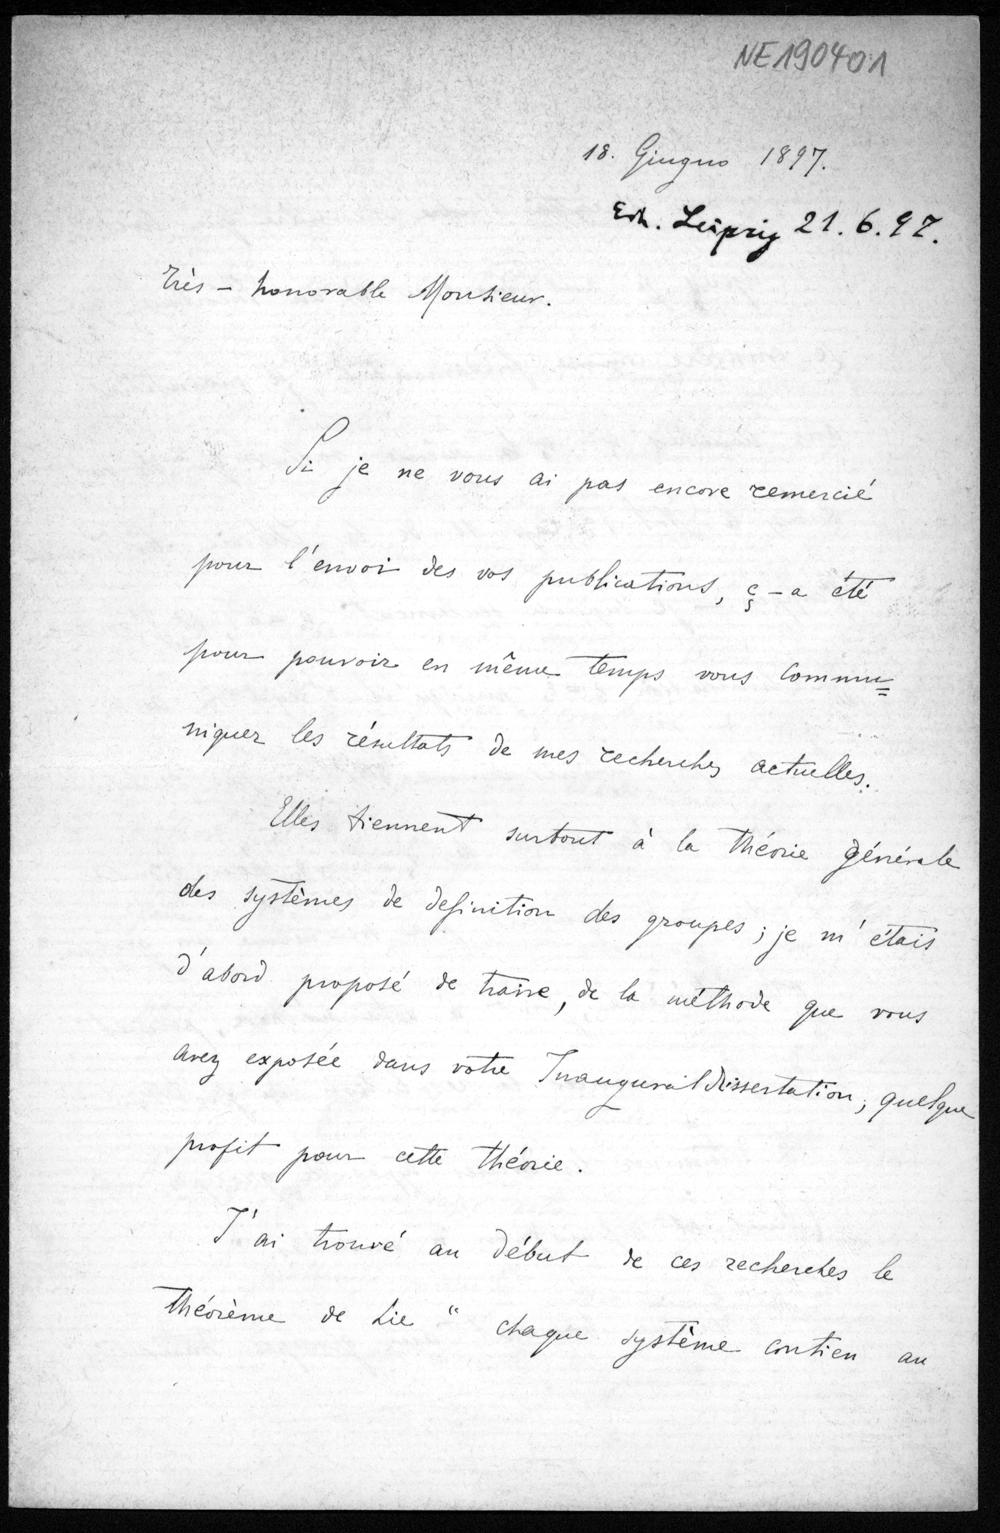 NE190401
18. Giugno 1897.
Erh. Leipzig 21.6.97.
Très - honorable Monsieur.
Si je ne vous ai pas encore remercié
pour l'envoi des vos publications, ç-a été
pour pouvoir en même temps vous commu=
niquer les résultats de mes recherches actuelles.
Elles tiennent surtout à la théorie générale
des systèmes de definition des groupes; je m'étais
d'abord proposé de traire, de la méthode que vous
avez exposée dans votre Inauguraldissertation, quelque
profit pour cette théorie.
J'ai trouvé au début de ces recherches le
théorème de Lie " chaque système contien au